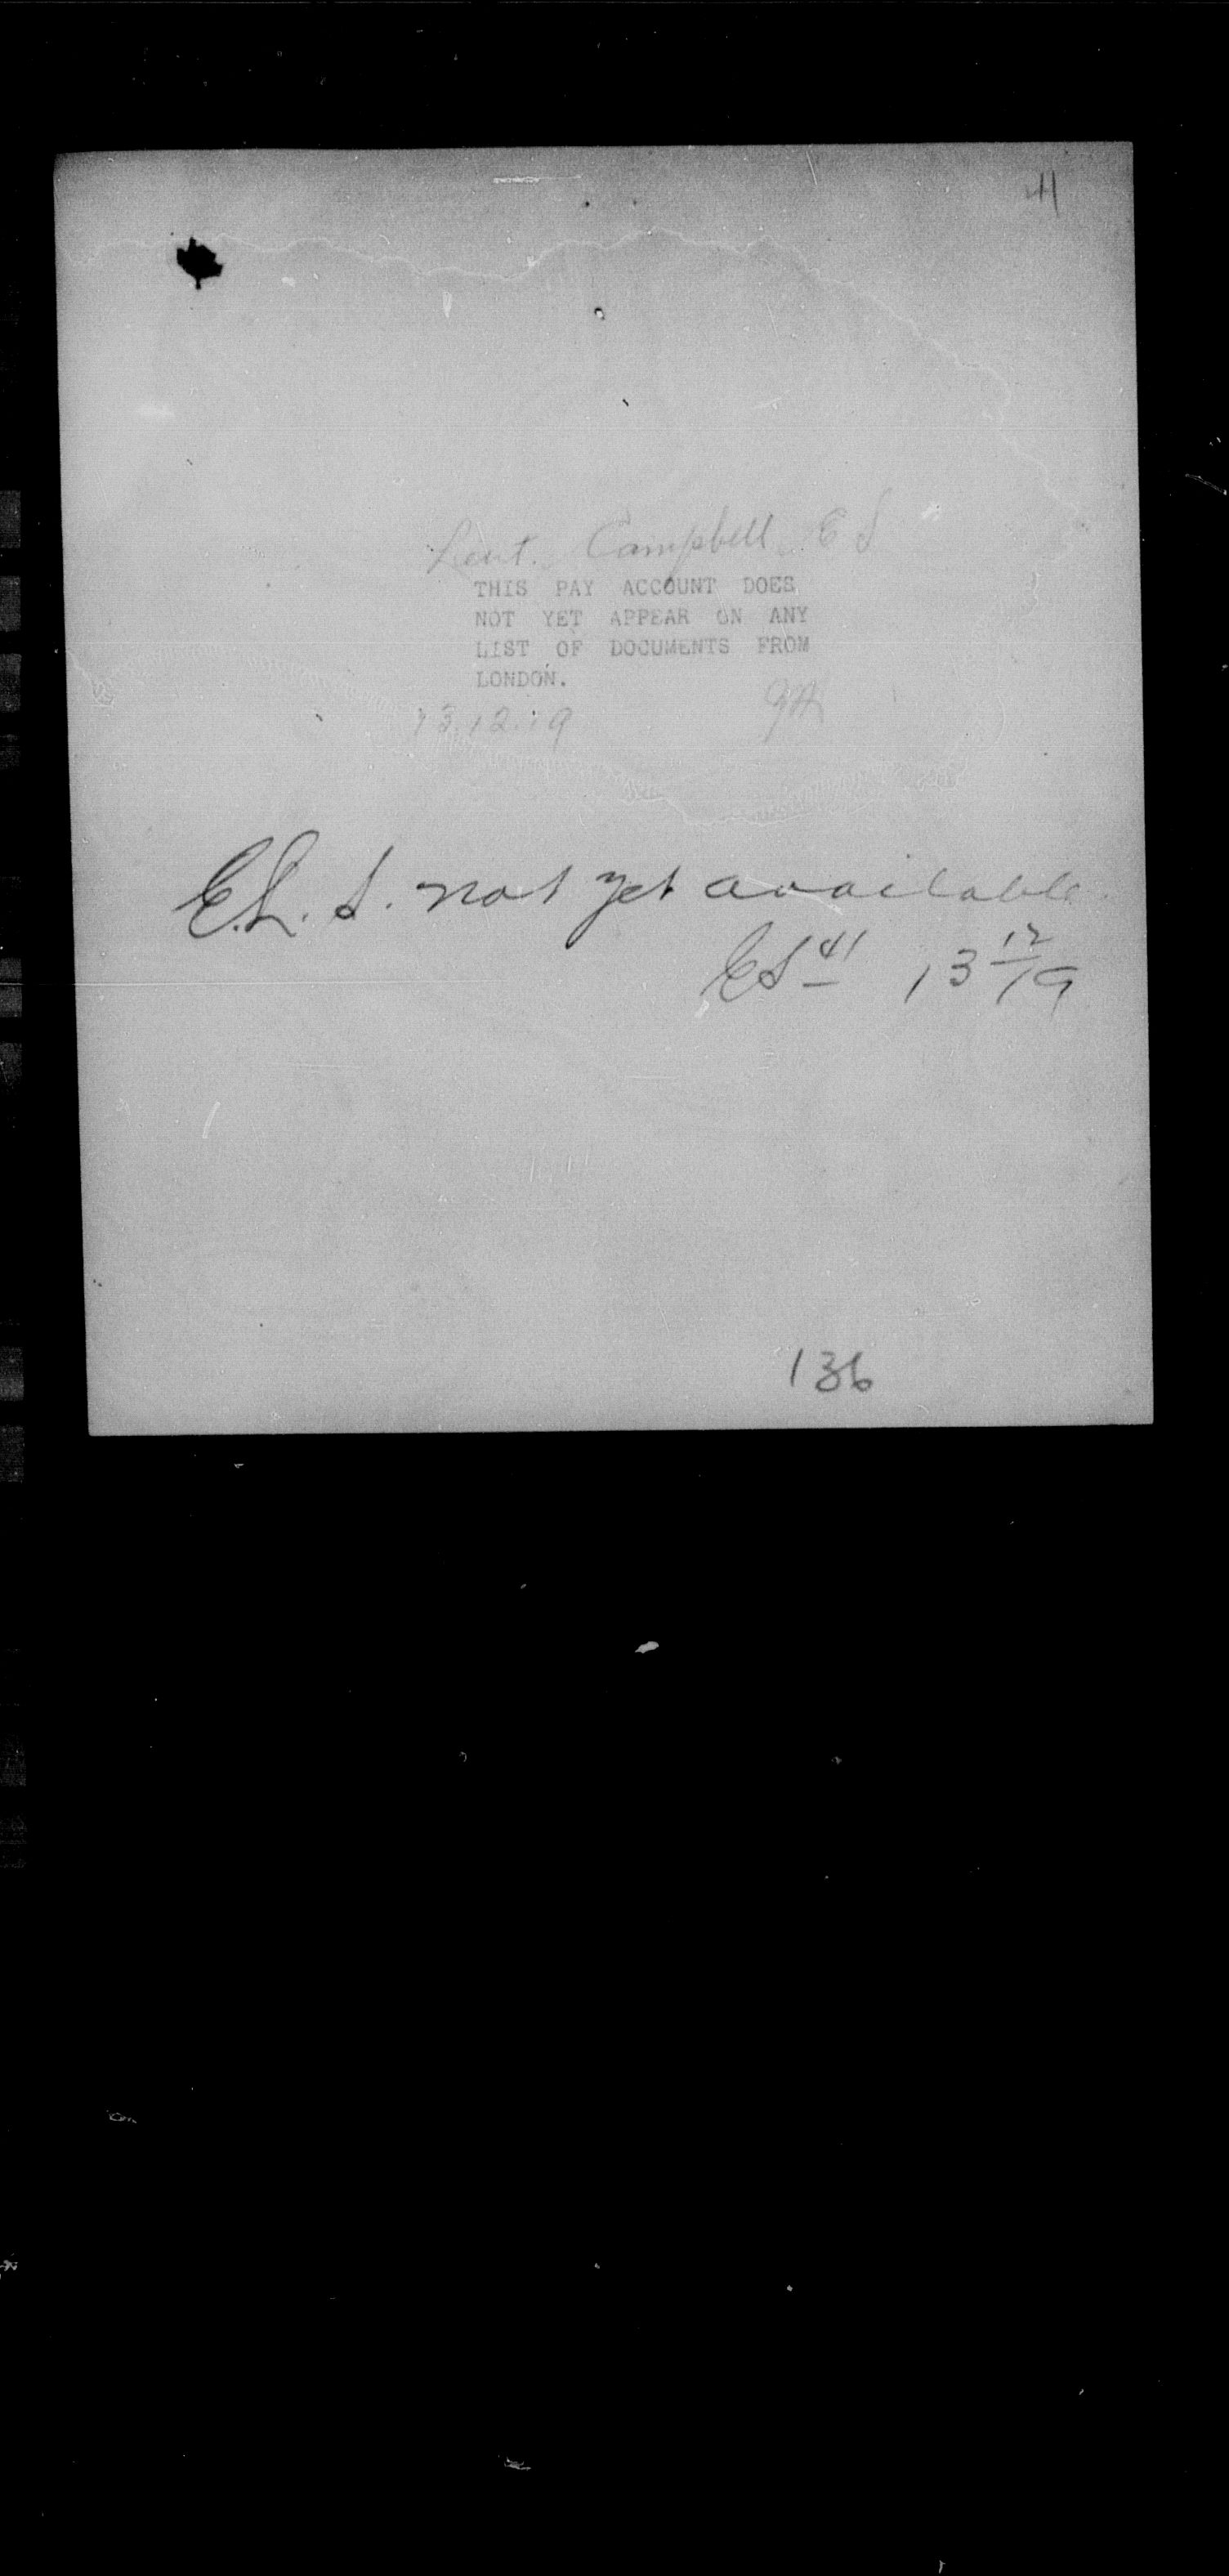 41
Lieut. Campbell E S
THIS PAY ACCOUNT DOES
NOT YET APPEAR ON ANY
LIST OF DOCUMENTS FROM
LONDON.
13.12.19
E.L.S. not yet available.
ES 41 13 12/19
136